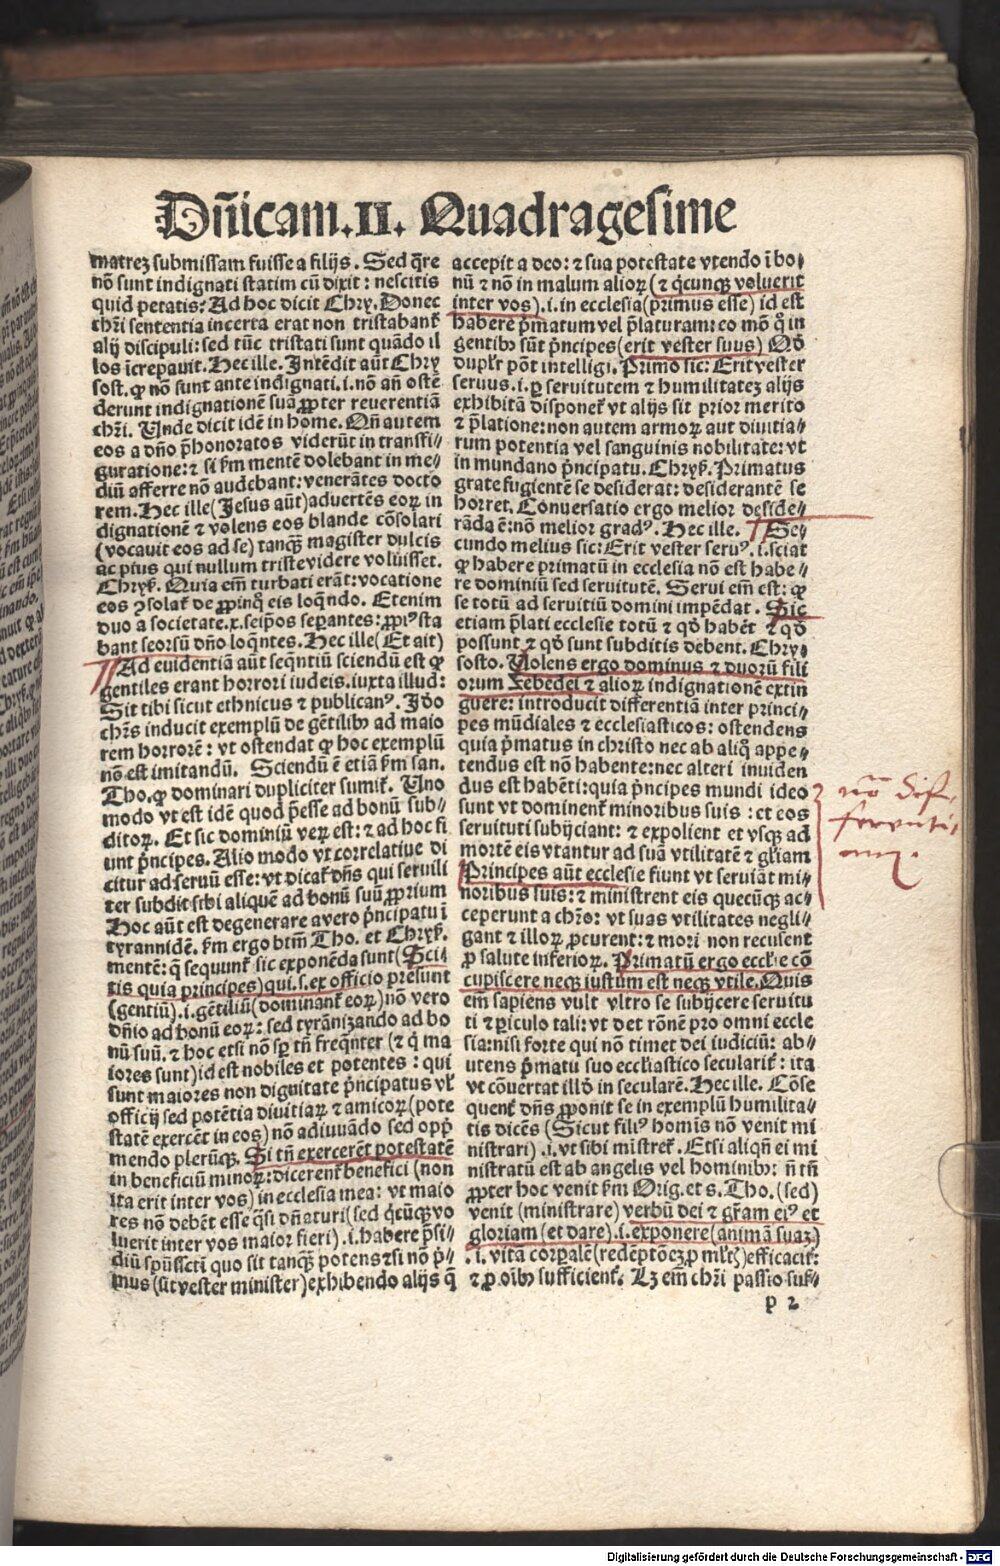 Dñicam.II. Quadragesime
matrez submissam fuisse a filijs. Sed q̄re
nō sunt indignati statim cū dixit: nescitis
quid petatis: Ad hoc dicit Chry. Donec
chr̄i sententia incerta erat non tristabant̄
alij discipuli: sed tūc tristati sunt quādo il
los īcrepauit. Hec ille. Intēdit aūt Chry
sost. ꝙ nō sunt ante indignati .i. nō añ oste
derunt indignationē suā ꝓpter reuerentiā
chr̄i. Unde dicit idē in home. Qñ autem
eos a dño p̄honoratos viderūt in transfi⸗
guratione: ⁊ si ẜm mentē dolebant in me⸗
diū afferre nō audebant: venerātes docto
rem. Hec ille (Jesus aūt) aduertēs eoꝝ in
dignationē ⁊ volens eos blande cōsolari
(vocauit eos ad se) tanqȝ magister dulcis
ac pius qui nullum triste videre voluisset.
Chryẜ. Quia em̄ turbati erāt: vocatione
eos ꝯsolat̄ de ꝓpinq̊ eis loq̄ndo. Etenim
duo a societate .x. seip̄os sepantes: ꝓpiꝰ sta
bant seorsū dño loq̄ntes. Hec ille (Et ait)
Ad euidentiā aūt seq̄ntiū sciendū est ꝙ
gentiles erant horrori iudeis. iuxta illud:
Sit tibi sicut ethnicus ⁊ publicanꝰ. Jdo
chr̄s inducit exemplū de gētilibꝫ ad maio
rem horrorē: vt ostendat ꝙ hoc exemplū
nō est imitandū. Sciendū ē etiā ẜm san.
Tho. ꝙ dominari dupliciter sumit̄. Uno
modo vt est idē quod p̄esse ad bonū sub⸗
ditoꝝ. Et sic dominiū veꝝ est: ⁊ ad hoc fi
unt p̄ncipes. Alio modo vt correlatiue di
citur ad seruū esse: vt dicat̄ dñs qui seruili
ter subdit sibi aliquē ad bonū suū ꝓprium
Hoc aūt est degenerare a vero p̄ncipatu ī
tyrannidē. ẜm ergo btm̄ Tho. et Chryẜ.
mentē: q̄ sequunt̄ sic exponēda sunt (Sci⸗
tis quia principes) qui .s. ex officio presunt
(gentiū) .i. gētiliū (dominant̄ eoꝝ) nō vero
dñio ad bonū eoꝝ: sed tyrānizando ad bo
nū suū. ⁊ hoc etsi nō sꝑ tñ freq̄nter (⁊ q̇ ma
iores sunt) id est nobiles et potentes: qui
sunt maiores non dignitate p̄ncipatus vl̄
officij sed potētia diuitiaꝝ ⁊ amicoꝝ (pote
statē exercēt in eos) nō adiuuādo sed opp̄
mendo plerūqȝ. Si tñ exercerēt potestatē
in beneficiū minoꝝ: dicerent̄ benefici (non
ita erit inter vos) in ecclesia mea: vt maio
res nō debēt esse q̄si dñaturi (sed q̇cūqȝ vo
luerit inter vos maior fieri) .i. habere p̄si⸗
diū sp̄ussct̄i quo sit tanqȝ potens ⁊ si nō p̄⸗
mus (sit vester minister) exhibendo alijs q̄
accepit a deo: ⁊ sua potestate vtendo ī bo⸗
nū ⁊ nō in malum alioꝝ (⁊ q̇cunqȝ voluerit
inter vos) .i. in ecclesia (primus esse) id est
habere p̄matum vel p̄laturam: eo mō q̊ in
gentibꝫ sūt p̄ncipes (erit vester suus) Qd̄
duplr̄ pōt intelligi. Primo sic: Erit vester
seruus .i. ꝑ seruitutem ⁊ humilitatez alijs
exhibitā disponet̄ vt alijs sit prior merito
⁊ p̄latione: non autem armoꝝ aut diuitia⸗
rum potentia vel sanguinis nobilitate: vt
in mundano p̄ncipatu. Chryẜ. Primatus
grate fugientē se desiderat: desiderantē se
horret. Conuersatio ergo melior deside⸗
rāda ē: nō melior gradꝰ. Hec ille. Se⸗
cundo melius sic: Erit vester seruꝰ .i. sciat
ꝙ habere primatū in ecclesia nō est habe⸗
re dominiū sed seruitutē. Serui em̄ est: ꝙ
se totū ad seruitiū domini impēdat. Sic
etiam p̄lati ecclesie totū ⁊ qd̄ habēt ⁊ qd̄
possunt ⁊ qd̄ sunt subditis debent. Chry⸗
sosto. Uolens ergo dominus ⁊ duorū fili
orum Zebedei ⁊ alioꝝ indignationē extin
guere: introducit differentiā inter princi⸗
pes mūdiales ⁊ ecclesiasticos: ostendens
quia p̄matus in christo nec ab aliq̊ appe⸗
tendus est nō habente: nec alteri inuiden
dus est habēti: quia p̄ncipes mundi ideo
sunt vt dominent̄ minoribus suis: et eos
seruituti subijciant: ⁊ expolient et vsqȝ ad
mortē eis vtantur ad suā vtilitatē ⁊ gl̄iam
Principes aūt ecclesie fiunt vt seruiāt mi⸗
noribus suis: ⁊ ministrent eis quecūqȝ ac⸗
ceperunt a chr̄o: vt suas vtilitates negli⸗
gant ⁊ illoꝝ ꝓcurent: ⁊ mori non recusent
ꝓ salute inferioꝝ. Primatū ergo eccl̄ie cō
cupiscere neqȝ iustum est neqȝ vtile. Quis
em̄ sapiens vult vltro se subijcere seruitu
ti ⁊ ꝑiculo tali: vt det rōnē pro omni eccle
sia: nisi forte qui nō timet dei iudiciū: ab⸗
utens p̄matu suo eccl̄iastico secularit̄: ita
vt cōuertat illd̄ in secularē. Hec ille. Cōse
quent̄ dñs ꝓponit se in exemplū humilita⸗
tis dicēs (Sicut filiꝰ homis nō venit mi
nistrari) .i. vt sibi mistret̄. Etsi aliqñ ei mi
nistratū est ab angelis vel hominibꝫ: ñ tñ
ꝓpter hoc venit ẜm Orig. et s. Tho. (sed)
venit (ministrare) verbū dei ⁊ gr̄am eiꝰ et
gloriam (et dare) .i. exponere (animā suaȝ)
.i. vitā corꝑalē (redēptōeȝ ꝓ ml̄tꝭ) efficacit̄:
⁊ ꝓ oībꝫ sufficient̄. Lꝫ em̄ chr̄i passio suf⸗
p 2
Digitalisierung gefördert durch die Deutsche Forschungsgemeinschaft - DFG